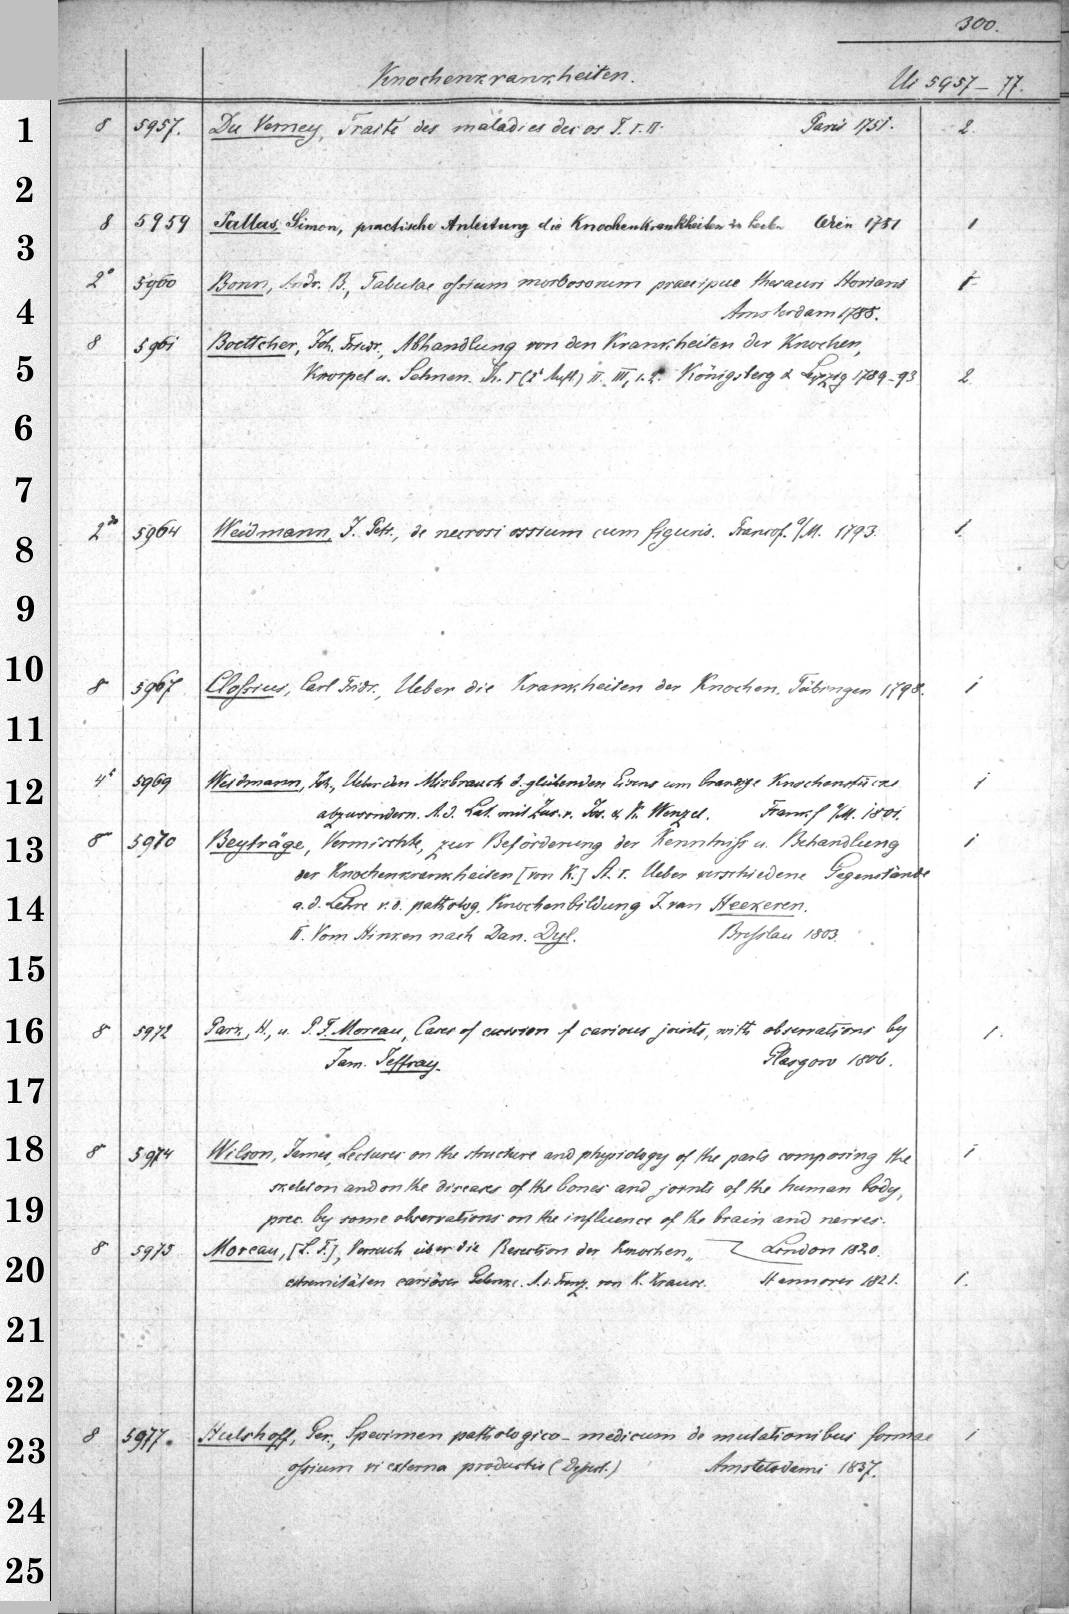 300.
Knochenkrankheiten. Ui 5957–77.
1 8 5957. Du Verney, Traité des maladies des os T. I. II. Paris 1751. 2.
2
3 8 5959 Pallas, Simon, practische Anleitung die Knochenkrankheiten zu heilen 1751 1
4 2° 5960 Bonn, Andr. B., Tabulae ossium morbosorum praecipue thesauri Hoviani 1
Amsterdam 1788.
5 8 5961 Boettcher, Joh. Fridr., Abhandlung von den Krankheiten der Knochen,
Knorpel u. Sehnen. Th. I (2e Aufl) II. III, 1. 2. Königsberg & Leipzig 1789–93 2.
6
7
8 2° 5964 Weidmann, J. Petr., de necrosi ossium cum figuris. Francof. a/M. 1793. 1.
9
10 8 5967 Clossius, Carl Fridr., Ueber die Krankheiten der Knochen. Tübingen 1798. 1
11
12 4° 5969 Weidmann, Joh., Ueber den Misbrauch d. glühenden Eisens um brandige Knochenstücke 1
abzusondern. A. d. Lat. mit Zus. v. Jos. & K. Wenzel. Frankf a/M. 1801.
13 8 5970 Beyträge, Vermischte, zur Beförderung der Kenntniß u. Behandlung 1
der Knochenkrankheiten [von K.] A. I. Ueber verschiedene Gegenstände
14 a. d. Lehre v. d. patholog. Knochenbildung J. van Heekeren.
II. Vom Hinken nach Dan. Dyl. Breslau 1803.
15
16 8 5972 Park, H., u. P. F. Moreau, Cases of excision of carious joints, with observations by 1.
Jam. Jeffray. Glasgow 1806.
17
18 8 5974 Wilson, James, Lectures on the structure and physiology of the parts composing the 1
skeleton and on the diseases of the bones and joints of the human body,
19 prec. by some observations on the influence of the brain and nerves.
20 8 5975 Moreau, [P. F.], Versuch über die Resection der Knochen„ London 1820.
extremitäten cariöser Gelenke. A. d. Franz. von K. Krause. Hannover 1821. 1.
21
22
23 8 5977. Hulshoff, Ger., Specimen pathologico-medicum de mutationibus formae 1
ossium vi externa productis (Dissert.) Amstelodami 1837.
24
25